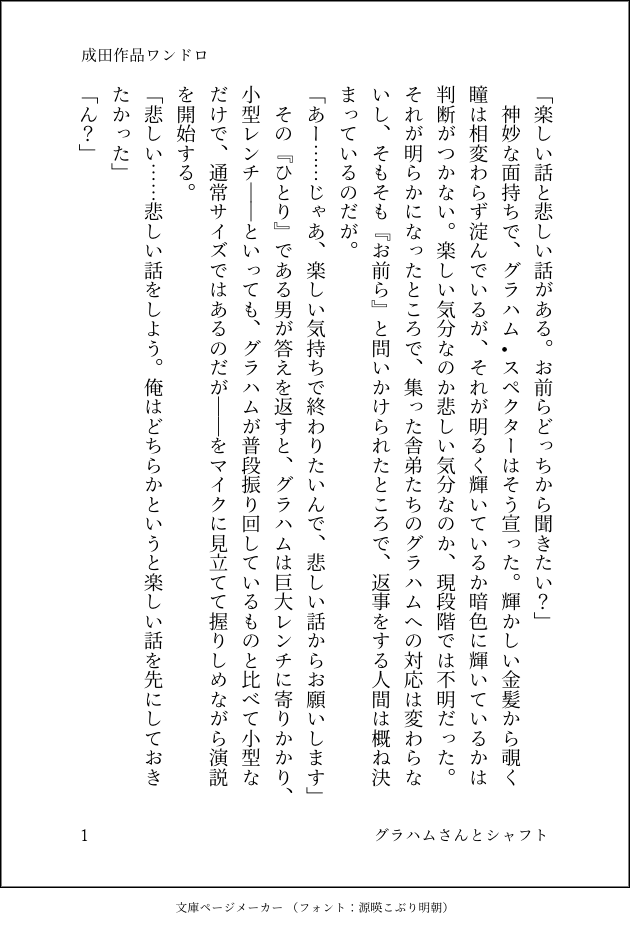 成田作品ワンドロ
「楽しい話と悲しい話がある。お前らどっちから聞きたい？」
　神妙な面持ちで、グラハム・スペクターはそう宣った。輝かしい金髪から覗く
瞳は相変わらず淀んでいるが、それが明るく輝いているか暗色に輝いているかは
判断がつかない。楽しい気分なのか悲しい気分なのか、現段階では不明だった。
それが明らかになったところで、集った舎弟たちのグラハムへの対応は変わらな
いし、そもそも『お前ら』と問いかけられたところで、返事をする人間は概ね決
まっているのだが。
「あー……じゃあ、楽しい気持ちで終わりたいんで、悲しい話からお願いします」
　その『ひとり』である男が答えを返すと、グラハムは巨大レンチに寄りかかり、
小型レンチ――といっても、グラハムが普段振り回しているものと比べて小型な
だけで、通常サイズではあるのだが――をマイクに見立てて握りしめながら演説
を開始する。
「悲しい……悲しい話をしよう。俺はどちらかというと楽しい話を先にしておき
たかった」
「ん？」
グラハムさんとシャフト
1
文庫ページメーカー（フォント：源暎こぶり明朝）